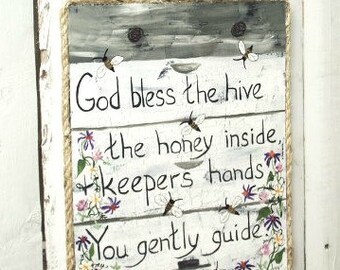 God bless the hive
the honey inside,
+ keepers hands
You gently guide.